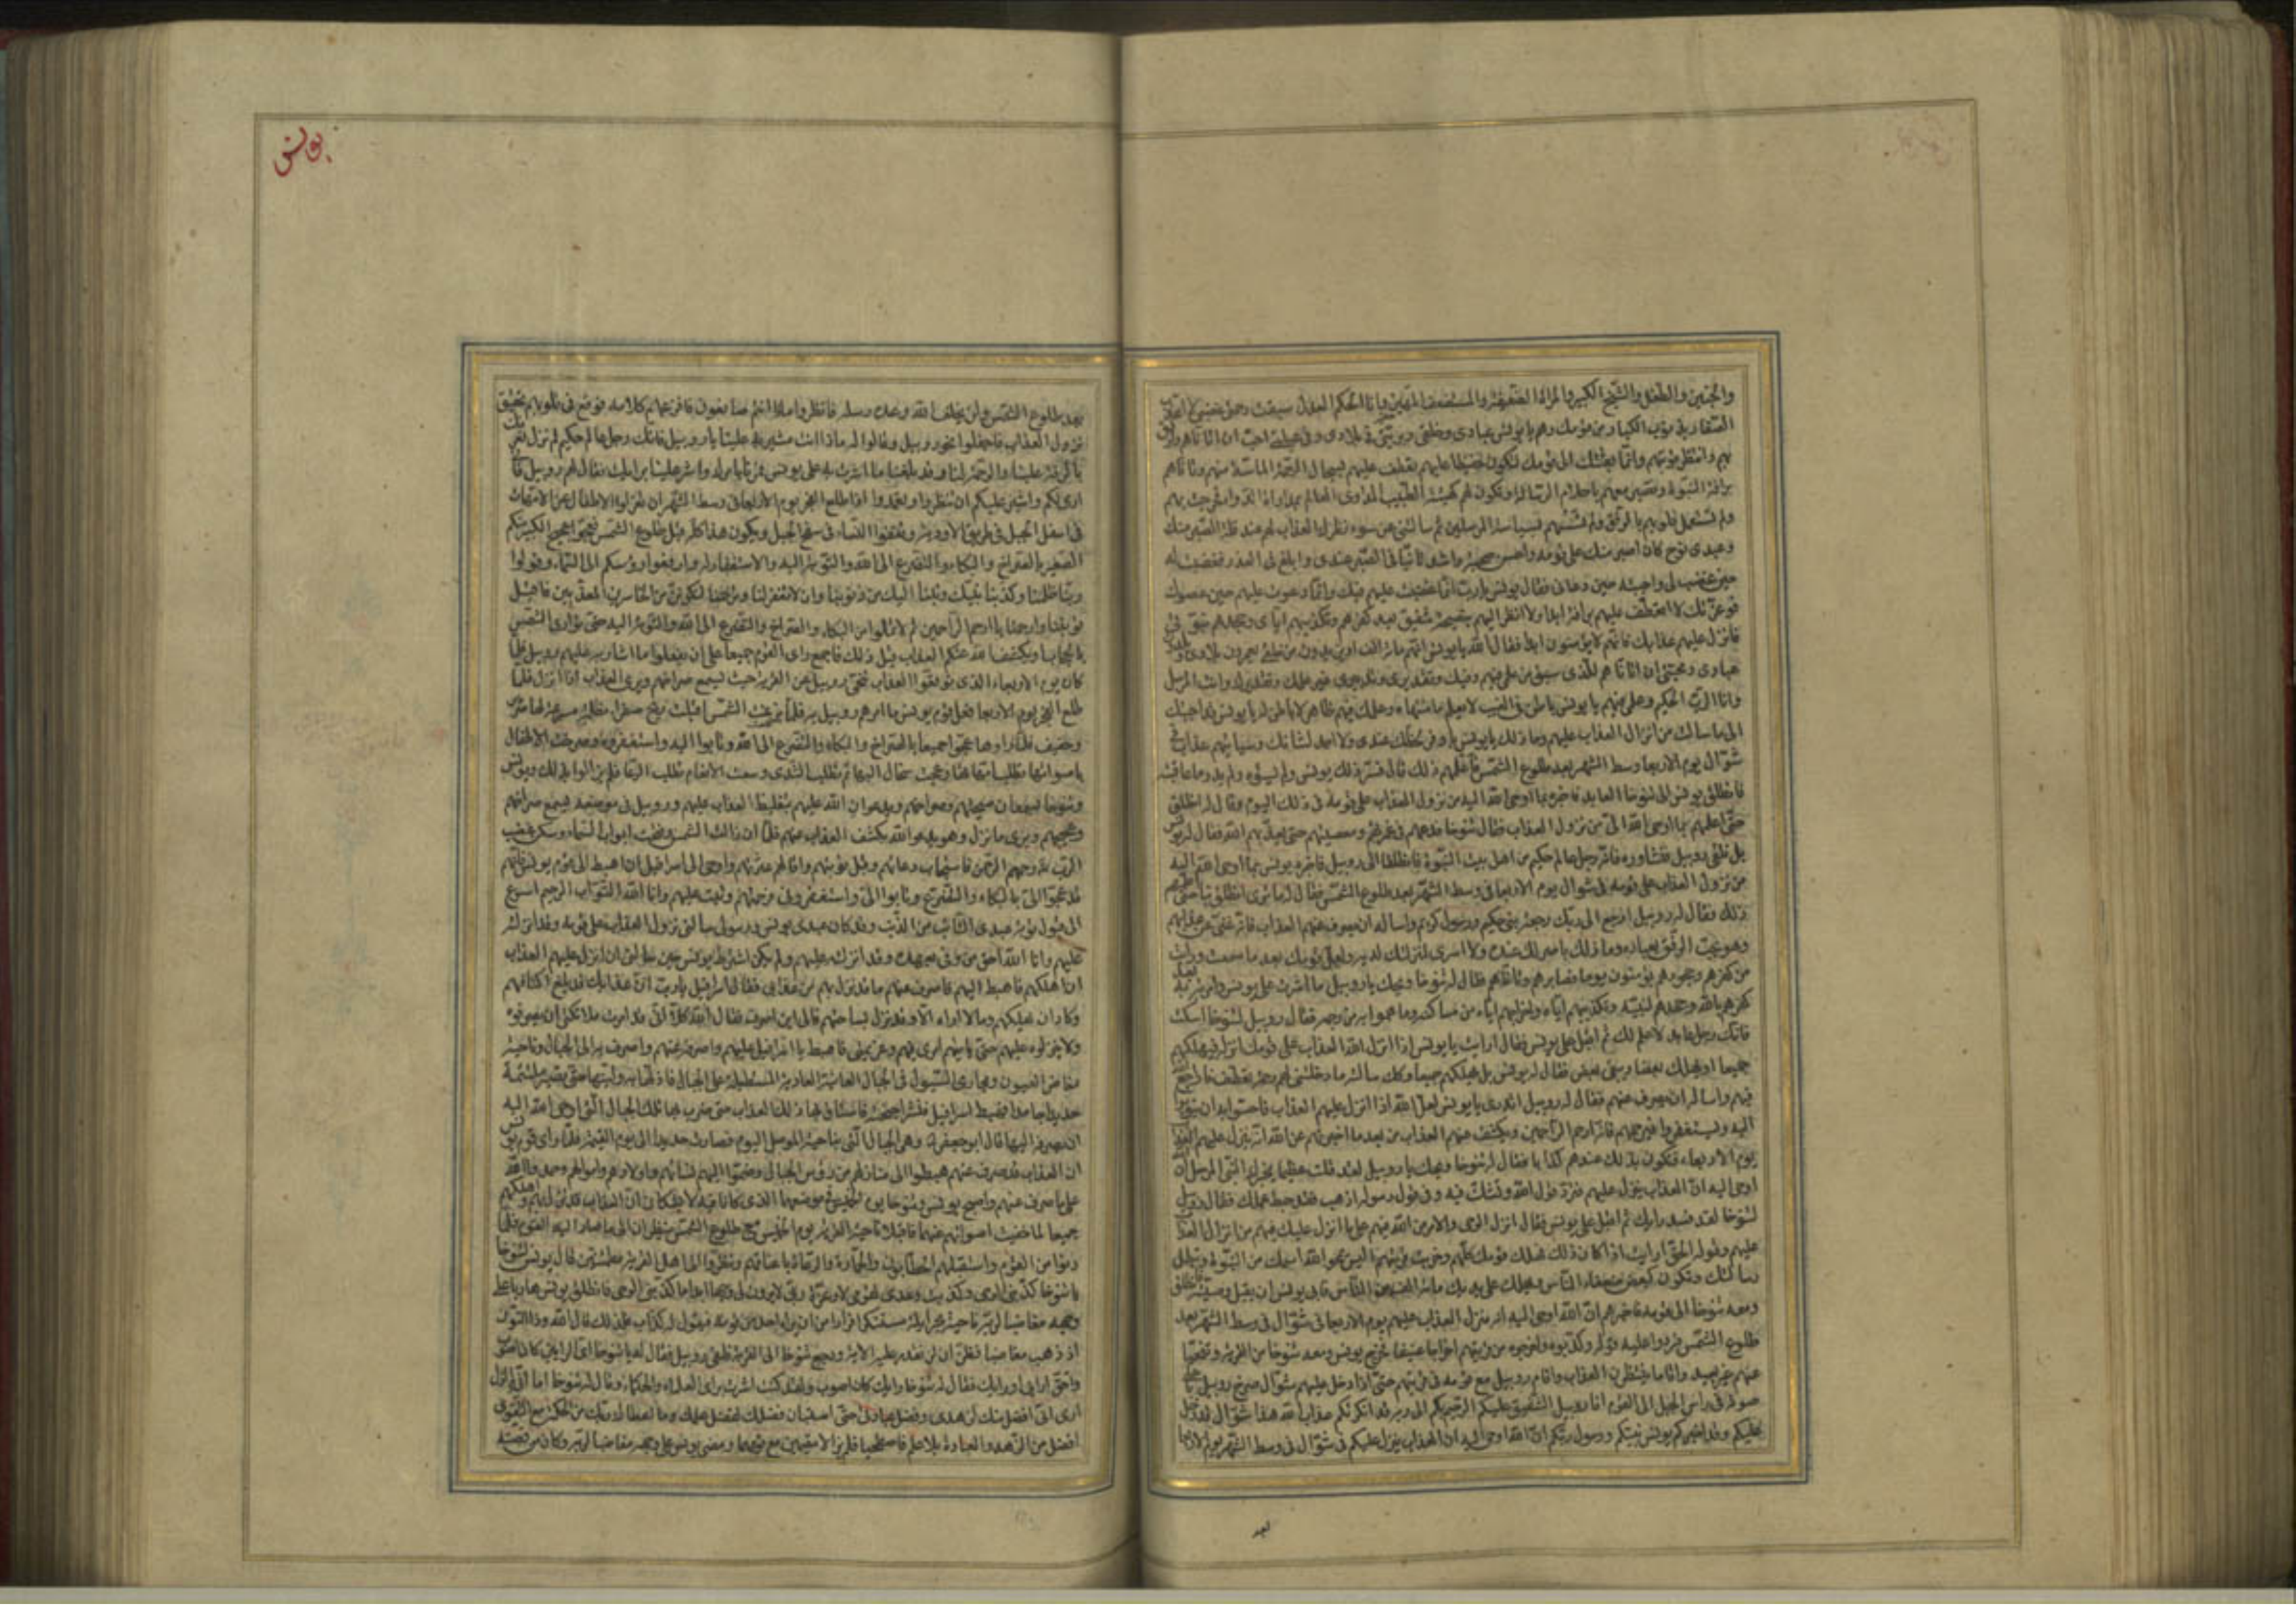 والجنين والطفل والشيخ الكبير والمراة الضعيفة والمستضعف المهين وانا الحكم العدل سبقت رحمتى غضبى لا اعذب
الصغار بذنوب الكبار من قومك وهم يا يونس عبادى وخلقى وبريتى فى بلادى وفى عيلتى احب ان اتاناهم وارفق
بهم وانتظر توبتهم وانما بعثتك الى قومك لتكون حفيظا عليهم تعطف عليهم لسجال الرحمة الماسة منهم وتاناهم
برافة النبوة وتصبر معهم باحلام الرسالة وتكون لهم كهيئة الطبيب المداوى العالم بمداواة الداء فخرجت بهم
ولم تستعمل قلوبهم بالرفق ولم تسسهم بسياسة المرسلين ثم سالتنى عن سوء نظرك العذاب لهم عند قلة الصبر منك
وعبدى نوح كان اصبر منك على قومه واحسن صحبة واشد تانيا فى الصبر عندى وابلغ فى العذر فغضبت له
حين غضب لى واجبته حين دعانى فقال يونس يا رب انما غضبت عليهم فيك وانما دعوت عليهم حين عصوك
فوعزتك لا اتعطف عليهم برافة ابدا ولا انظر اليهم بنصيحة شفيق بعد كفرهم وتكذيبهم اياى وجحدهم نبوتى
فانزل عليهم عذابك فانهم لا يؤمنون ابدا فقال الله يا يونس انهم مائة الف او يزيدون من خلقى يعمرون بلادى ويلدون
عبادى ومحبتى ان اتاناهم للذى سبق من علمى فيهم وفيك وتقديرى وتدبيرى غير علمك وتقديرك وانت المرسل
وانا الرب الحكيم وعلمى فيهم يا يونس باطن فى الغيب لا يعلم ما منتهاه وعلمك فيهم ظاهر لا باطن له يا يونس قد اجبتك
الى ما سالت من انزال العذاب عليهم وما ذلك يا يونس باوفر لحظك عندى ولا احمد لشانك وسياتيهم عذاب فى
شوال يوم الاربعا وسط الشهر بعد طلوع الشمس فاعلمهم ذلك قال فسر ذلك يونس ولم يسؤه ولم يدر ما عاقبته
فانطلق يونس الى تنوخا العابد فاخبره بما اوحى الله اليه من نزول العذاب على قومه فى ذلك اليوم وقال له انطلق
حتى اعلمهم بما اوحى الله الى من نزول العذاب فقال تنوخا فدعهم فى غمرتهم ومعصيتهم حتى يعذبهم الله فقال له يونس
بل نلقى روبيل فنشاوره فانه رجل عالم حكيم من اهل بيت النبوة فانطلقا الى روبيل فاخبره يونس بما اوحى الله اليه
من نزول العذاب على قومه فى شوال يوم الاربعا فى وسط الشهر بعد طلوع الشمس فقال له ما ترى انطلق بنا حتى اعلمهم
ذلك فقال له روبيل ارجع الى ربك رجعة نبى حكيم ورسول كريم واساله ان يصرف عنهم العذاب فانه غنى عن عذابهم
وهو يحب الرفق بعباده وما ذلك باضر لك عنده ولا اسرى لمنزلتك لديه ولعل قومك بعد ما سمعت ورايت
من كفرهم وجحودهم يؤمنون يوما فصابرهم وتاناهم فقال له تنوخا ويحك يا روبيل ما اشرت على يونس وامرته به بعد
كفرهم بالله وجحدهم لنبيه وتكذيبهم اياه واخراجهم اياه من مساكنه وما هموا به من رجمه فقال روبيل لتنوخا اسكت
فانك رجل عابد لا علم لك ثم اقبل على يونس فقال ارايت يا يونس اذا انزل الله العذاب على قومك انزله فيهلكهم
جميعا او يهلك بعضا ويبقى بعض فقال له يونس بل يهلكهم جميعا وكك سالته ما دخلتنى لهم رحمة تعطف فاراجع الله
فيهم واساله ان يصرف عنهم فقال له روبيل اتدرى يا يونس لعل الله اذا انزل عليهم العذاب فاحسوا به ان يتوبوا
اليه ويستغفروا فيرحمهم فانه ارحم الراحمين ويكشف عنهم العذاب من بعد ما اخبرتهم عن الله انه ينزل عليهم العذاب
يوم الاربعاء فتكون بذلك عندهم كذابا فقال له تنوخا ويحك يا روبيل لقد قلت عظيما يخبرك النبى المرسل ان الله
اوحى اليه ان العذاب ينزل عليهم فترد قول الله وتشك فيه وفى قول رسوله اذهب فقد حبط عملك فقال روبيل
لتنوخا لقد فسد رايك ثم اقبل على يونس فقال انزل الوحى والامر من الله فيهم على ما انزل عليك فيهم من انزال العذاب
عليهم وقوله الحق ارايت اذا كان ذلك فهلك قومك كلهم وخربت قريتهم اليس يمحو الله اسمك من النبوة وتبطل
رسالتك وتكون كبعض ضعفاء الناس ويهلك على يديك مائة الف من الناس فابى يونس ان يقبل وصيته فانطلق
ومعه تنوخا الى قومه فاخبرهم ان الله اوحى اليه انه منزل العذاب عليهم يوم الاربعا فى شوال فى وسط الشهر بعد
طلوع الشمس فردوا عليه قوله وكذبوه واخرجوه من قريتهم اخراجا عنيفا فخرج يونس ومعه تنوخا من القرية وتنحيا
عنهم غير بعيد واقاما ينتظران العذاب واقام روبيل مع قومه فى قريتهم حتى اذا دخل عليهم شوال صرخ روبيل باعلى
صوته فى راس الجبل الى القوم انا روبيل الشفيق عليكم الرحيم بكم الى ربه قد انكرتكم عذاب الله هذا شوال قد دخل
عليكم وقد اخبركم يونس نبيكم ورسول ربكم ان الله اوحى اليه ان العذاب ينزل عليكم فى شوال فى وسط الشهر يوم الاربعا
بعد
يونس
بعد طلوع الشمس ولن يخلف الله وعده رسله فانظروا ماذا انتم صانعون فافزعهم كلامه فوقع فى قلوبهم تحقيق
نزول العذاب فاجفلوا نحو روبيل وقالوا له ماذا انت مشير به علينا يا روبيل فانك رجل عالم حكيم لم نزل نعرفك
بالرقة علينا والرحمة لنا وقد بلغنا ما اشرت به على يونس فمرنا بامرك واشر علينا برايك فقال لهم روبيل فانى
ارى لكم واشير عليكم ان تنظروا وتعمدوا اذا طلع الفجر يوم الاربعا فى وسط الشهر ان تعزلوا الاطفال عن الامهات
فى اسفل الجبل فى طريق الاودية وتقفوا النساء فى سفح الجبل ويكون هذا كله قبل طلوع الشمس فعجوا عجيج الكبير منكم
الصغير بالصراخ والبكاء والتضرع الى الله والتوبة اليه والاستغفار له وارفعوا رؤسكم الى السماء وقولوا
ربنا ظلمنا وكذبنا نبيك وتبنا اليك من ذنوبنا وان لا تغفر لنا وترحمنا لنكونن من الخاسرين المعذبين فاقبل
توبتنا وارحمنا يا ارحم الراحمين ثم لا تملوا من البكاء والصراخ والتضرع الى الله والتوبة اليه حتى توارى الشمس
بالحجاب او يكشف الله عنكم العذاب قبل ذلك فاجمع راى القوم جميعا على ان يفعلوا ما اشار به عليهم روبيل فلما
كان يوم الاربعاء الذى توقعوا العذاب تنحى روبيل عن القرية حيث يسمع صراخهم ويرى العذاب اذا نزل فلما
طلع الفجر يوم الاربعا فعل قوم يونس ما امرهم روبيل به فلما بزغت الشمس اقبلت ريح صفراء مظلمة مسرعة لها صرير
وحفيف فلما راوها عجوا جميعا بالصراخ والبكاء والتضرع الى الله وتابوا اليه واستغفروه وصرخت الاطفال
باصواتها تطلب امهاتها وعجت سخال البهائم تطلب الثدى وسعت الانعام تطلب الرعا فلم يزالوا بذلك ويونس
وتنوخا يسمعان صيحتهم وصراخهم ويدعوان الله عليهم بتغليظ العذاب عليهم وروبيل فى موضعه يسمع صراخهم
وعجيجهم ويرى ما نزل وهو يدعو الله بكشف العذاب عنهم فلما ان زالت الشمس وفتحت ابواب السماء وسكن غضب
الرب تعالى رحمهم الرحمن فاستجاب دعائهم وقبل توبتهم واقالهم عثرتهم واوحى الى اسرافيل ان اهبط الى قوم يونس فانهم
قد عجوا الى بالبكاء والتضرع وتابوا الى واستغفرونى فرحمتهم وتبت عليهم وانا الله التواب الرحيم اسرع
الى قبول توبة عبدى التائب من الذنب وقد كان عبدى يونس ورسولى سالنى نزول العذاب على قومه وقد انزلته
عليهم وانا الله احق من وفى بعهده وقد انزلته عليهم ولم يكن اشترط يونس حين سالنى ان انزل عليهم العذاب
ان اهلكهم فاهبط اليهم فاصرف عنهم ما قد نزل بهم من عذابى فقال اسرافيل يا رب ان عذابك قد بلغ اكتافهم
وكاد ان يهلكهم وما اراه الا وقد نزل بساحتهم فالى اين اصرفه فقال الله كلا انى قد امرت ملائكتى ان يصرفوه
ولا ينزلوه عليهم حتى ياتيهم امرى فيهم وعزيمتى فاهبط يا اسرافيل عليهم واصرفه عنهم واصرف به الى الجبال وناحية
مفاض العيون ومجارى السيول فى الجبال العاتية العادية المستطيلة على الجبال فاذلها به ولينها حتى تصير ملتئمة
حديدا جامدا فهبط اسرافيل فنشر اجنحته فاستاق بها ذلك العذاب حتى ضرب بها تلك الجبال التى اوحى الله اليه
ان يصرفه اليها قال ابو جعفر وهى الجبال التى بناحية الموصل اليوم فصارت حديدا الى يوم القيمة فلما راى قوم يونس
ان العذاب قد صرف عنهم هبطوا الى منازلهم من رؤس الجبال وضموا اليهم نساءهم واولادهم واموالهم وحمدوا الله
على ما صرف عنهم واصبح يونس وتنوخا يوم الخميس فى موضعهما الذى كانا فيه لا يشكان ان العذاب قد نزل بهم واهلكهم
جميعا لما خفيت اصواتهم عنهما فاقبلا ناحية القرية يوم الخميس مع طلوع الشمس ينظران الى ما صار اليه القوم فلما
دنوا من القوم واستقبلهم الحطابون والحمارة والرعاة باغنامهم ونظروا الى اهل القرية مطمئنين قال يونس لتنوخا
يا تنوخا كذبنى الوحى وكذبت وعدى لقومى لا وعزة ربى لا يرون لى وجها ابدا ما كذبنى الوحى فانطلق يونس هاربا على
وجهه مغاضبا لربه ناحية بحر ايلة مستنكرا فرارا من ان يراه احد من قومه فيقول له كذاب فلذلك قال الله وذا النون
اذ ذهب مغاضبا فظن ان لن نقدر عليه الاية ورجع تنوخا الى القرية فلقى روبيل فقال له يا تنوخا اى الرايين كان اصوب
واحق ارايى او رايك فقال له تنوخا رايك كان اصوب ولقد كنت اشرت براى العلماء والحكماء وقال له تنوخا اما انى لم ازل
ارى انى افضل منك لزهدى وفضل عبادتى حتى استبان فضلك لفضل علمك وما اعطاك ربك من الحكمة مع التقوى
افضل من الزهد والعبادة بلا علم فاصطحبا فلم يزالا مقيمين مع قومهما ومضى يونس على وجهه مغاضبا لربه وكان من قصته